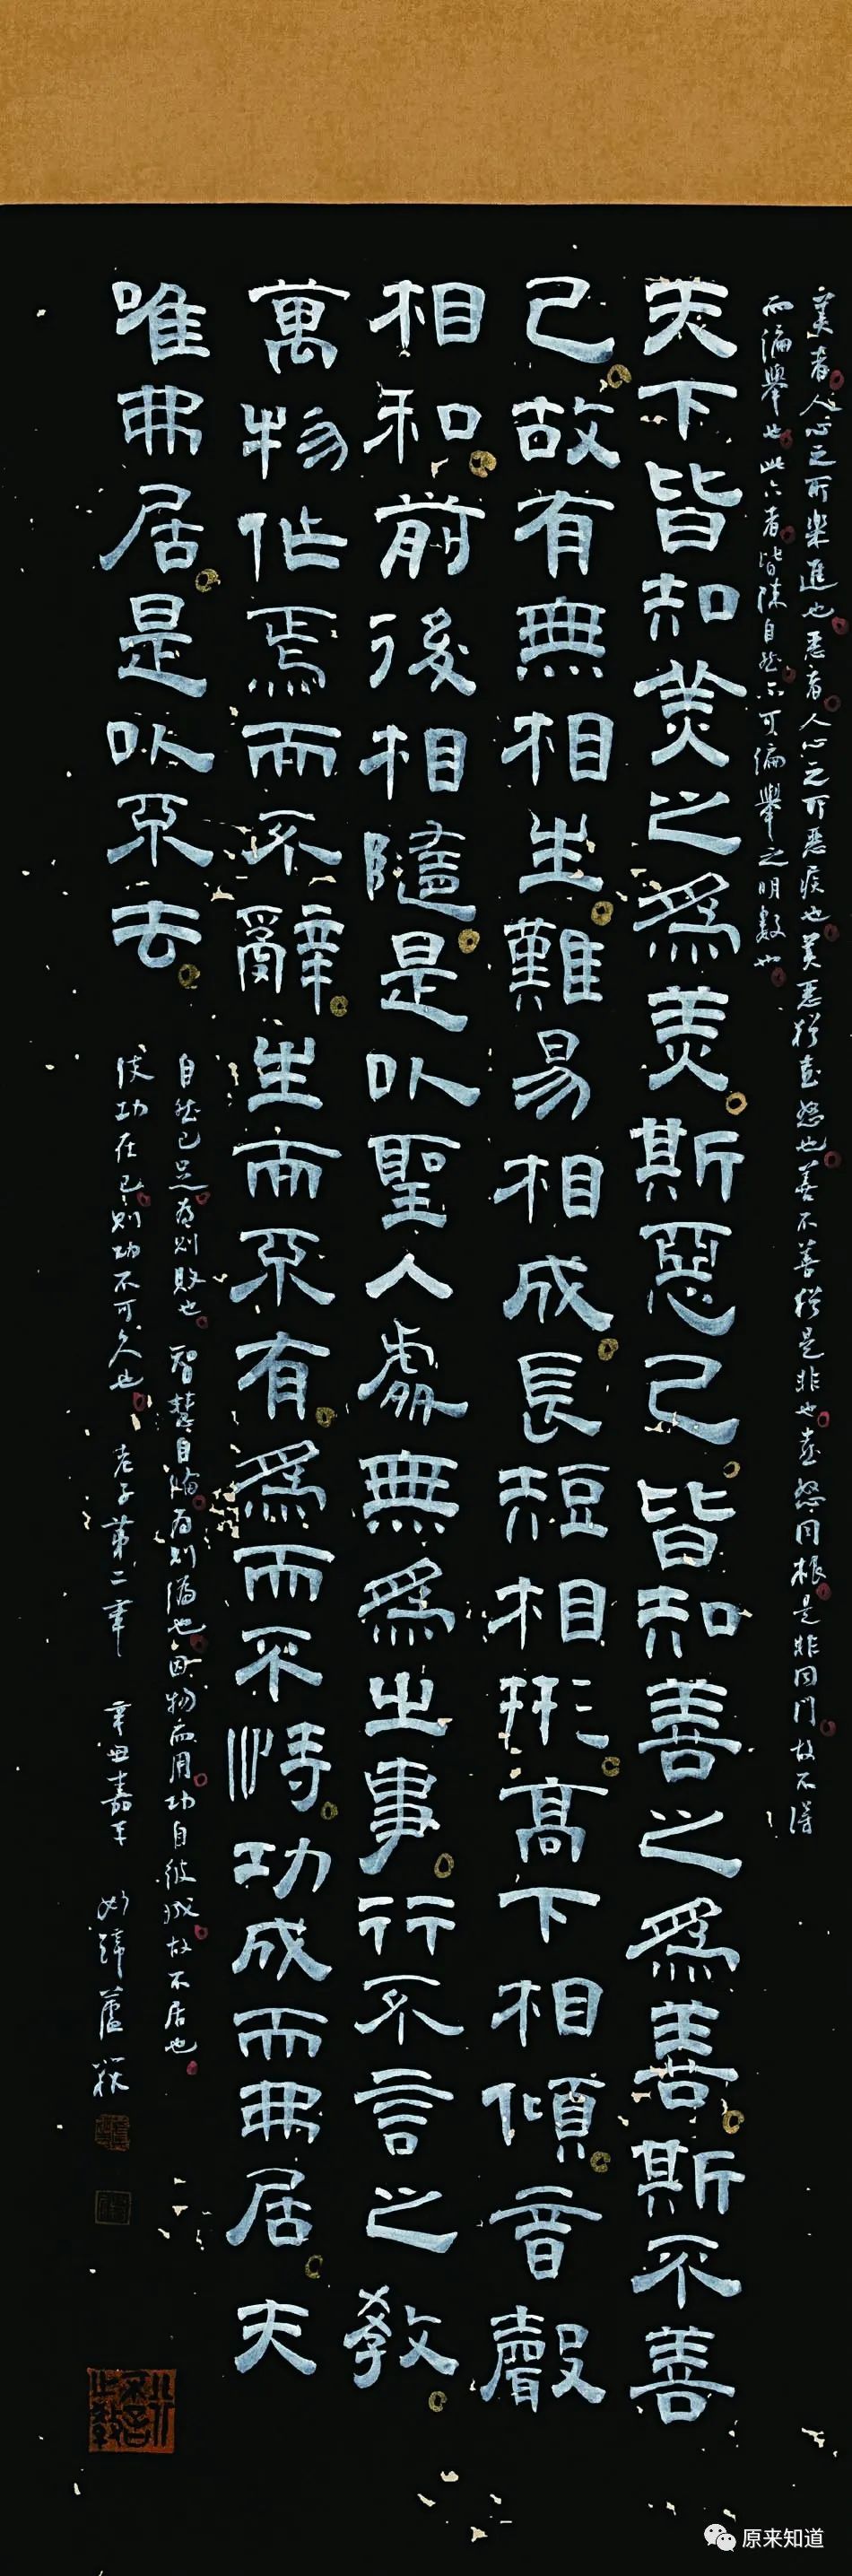 美者人心之所樂進也惡者人心之所惡疾也美惡猶喜怒也善不善猶是非也喜怒同根是非同門故不得
而偏舉也此六者皆陳自然不可偏舉之明數也
天下皆知美之為美斯惡已皆知善之為善斯不善
已故有無相生難易相成長短相形高下相傾音聲
相和前後相隨是以聖人處無為之事行不言之教
萬物作焉而不辭生而不有為而不恃功成而弗居夫
唯弗居是以不去
自然已足為則敗也智慧自備為則偽也因物而用功自彼成故不居也
使功在己則功不可久也老子第二章 辛丑嘉平
行不言之教
原来知道